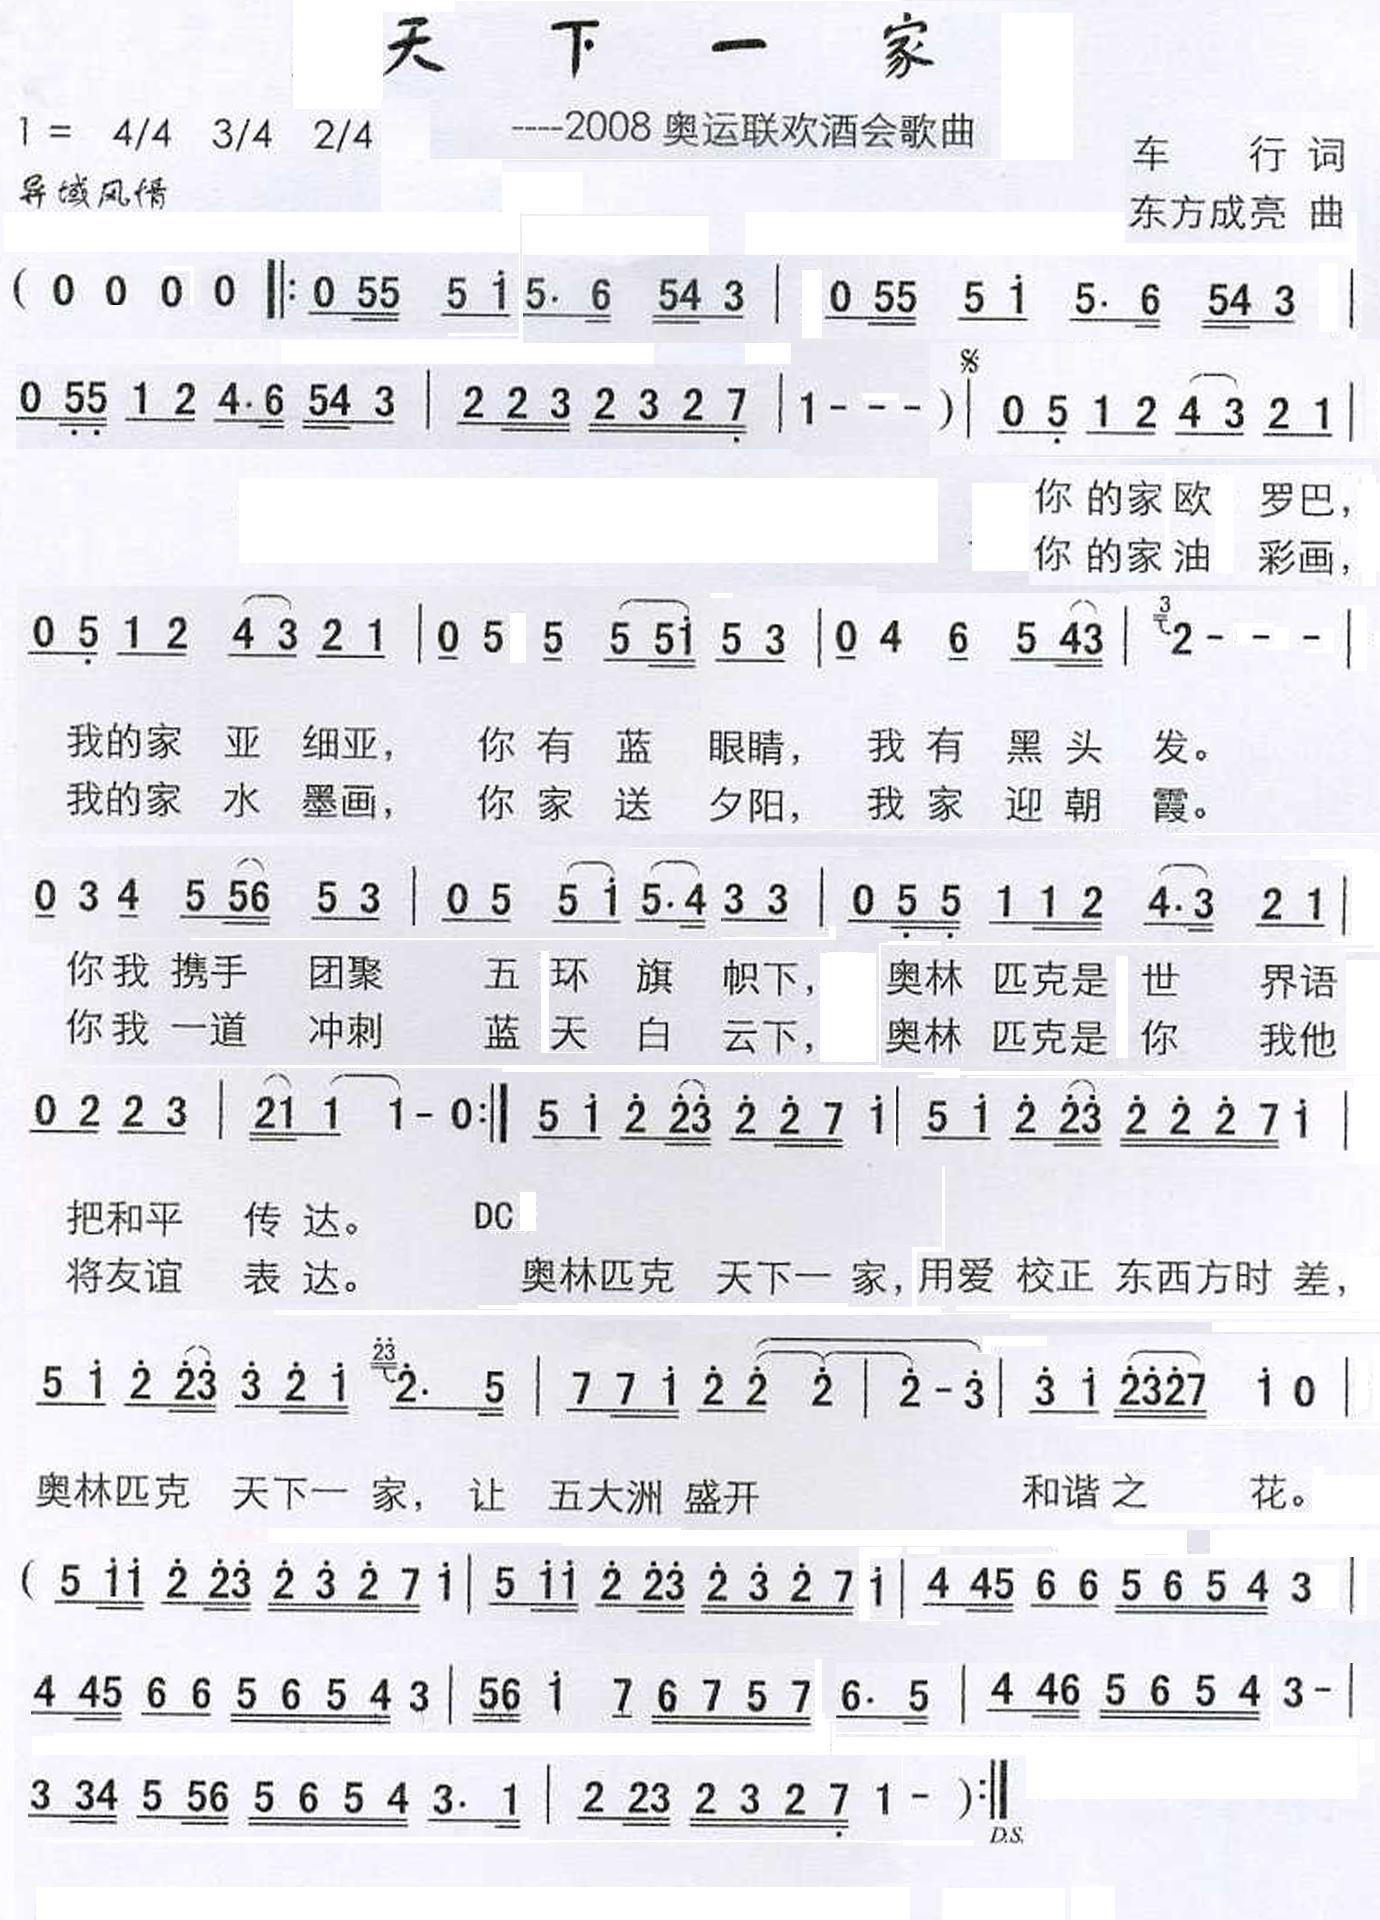 天 下 一 家
----2008 奥运联欢酒会歌曲
1 = 4/4 3/4 2/4
车 行 词
异域风情
东方成亮 曲
( 0 0 0 0 ‖: 0 55 5 i̇ 5· 6 54 3 | 0 55 5 i̇ 5· 6 54 3 |
0 5̣5̣ 1 2 4·6 54 3 | 2 2 3 2 3 2 7̣ | 1 - - - ) | 0 5̣ 1 2 4 3 2 1 |
你 的家 欧 罗巴，
你 的家 油 彩画，
0 5̣ 1 2 4 3 2 1 | 0 5 5 5 5i̇ 5 3 | 0 4 6 5 43 | 3 2 - - - |
我的家 亚 细亚， 你 有 蓝 眼睛， 我 有 黑 头 发。
我的家 水 墨画， 你 家 送 夕阳， 我 家 迎 朝 霞。
0 3 4 5 56 5 3 | 0 5 5 i̇ 5·4 3 3 | 0 5̣ 5̣ 1 1 2 4·3 2 1 |
你我 携手 团聚 五 环 旗 帜下， 奥林 匹克是 世 界语
你我 一道 冲刺 蓝 天 白 云下， 奥林 匹克是 你 我他
0 2 2 3 | 21 1 1 - 0 :‖ 5 i̇ 2̇ 2̇3̇ 2̇ 2̇ 7 i̇ | 5 i̇ 2̇ 2̇3̇ 2̇ 2̇ 2̇ 7 i̇ |
把和平 传 达。 DC
将友谊 表 达。 奥林匹克 天下一 家，用爱 校正 东西方时 差，
5 i̇ 2̇ 2̇3̇ 3̇ 2̇ i̇ 2̇3̇ 2̇· 5 | 7 7 i̇ 2̇ 2̇ 2̇ | 2̇ - 3̇ | 3̇ i̇ 2̇3̇2̇7 i̇ 0 |
奥林匹克 天下一 家， 让 五大洲 盛开 和谐 之 花。
( 5 i̇i̇ 2̇ 2̇3̇ 2̇ 3̇ 2̇ 7 i̇ | 5 i̇i̇ 2̇ 2̇3̇ 2̇ 3̇ 2̇ 7 i̇ | 4 45 6 6 5 6 5 4 3 |
4 45 6 6 5 6 5 4 3 | 56 i̇ 7 6 7 5 7 6· 5 | 4 46 5 6 5 4 3 - |
3 34 5 56 5 6 5 4 3· 1 | 2 23 2 3 2 7̣ 1 - ) :‖
D.S.